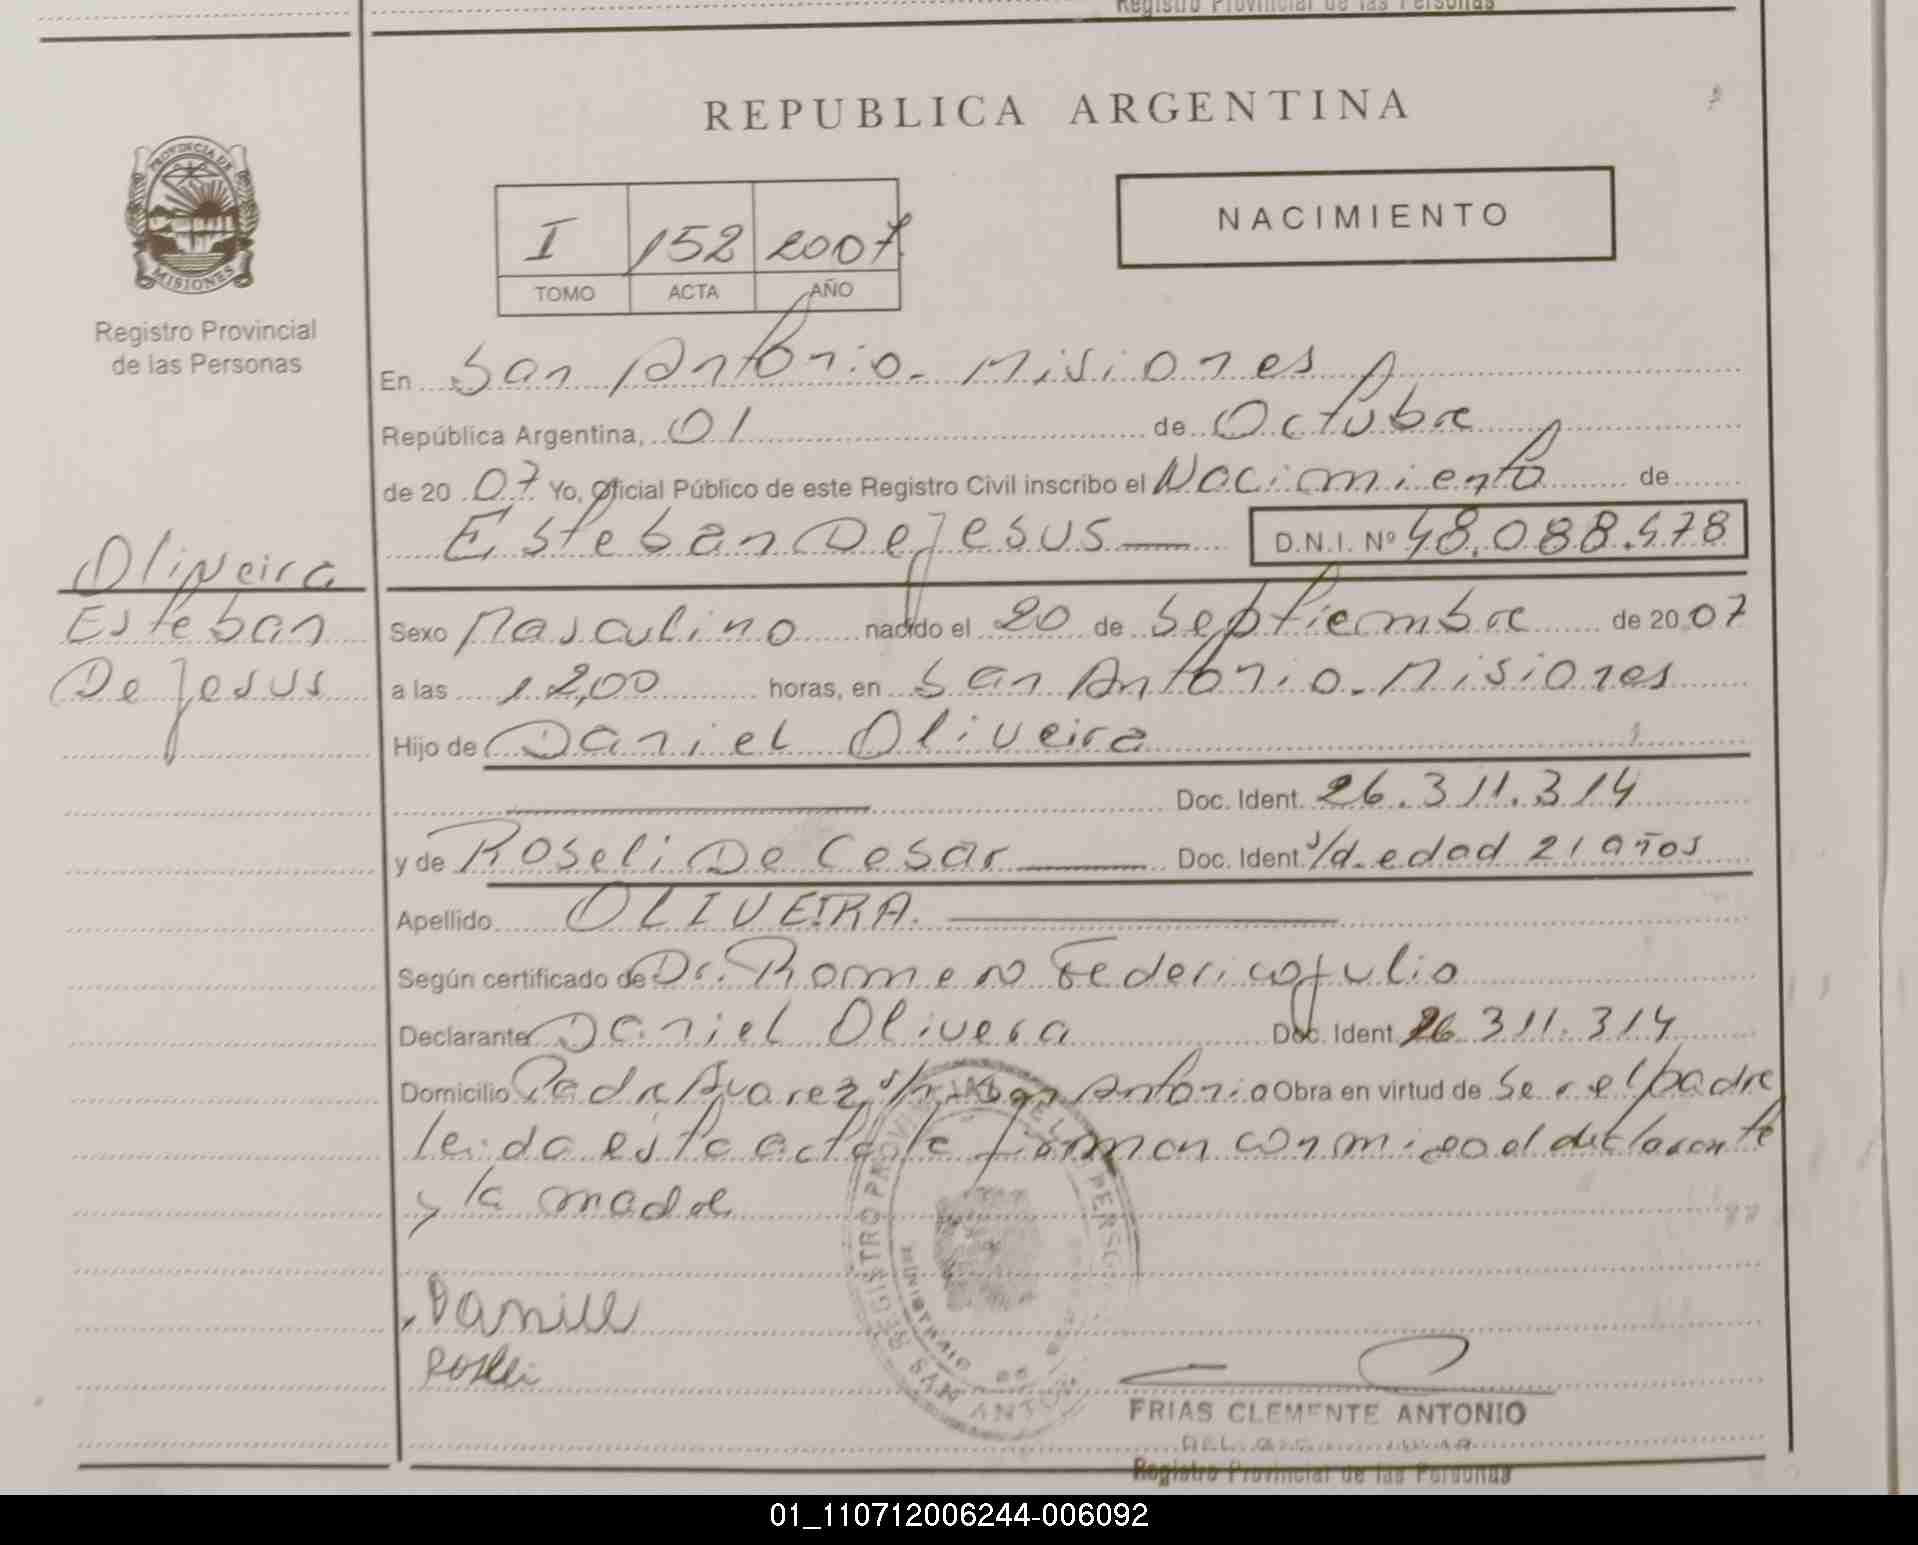 Registro Provincial de las Personas
REPUBLICA ARGENTINA
PROVINCIA DE
MISIONES
Registro Provincial
de las Personas
I 152 2007
TOMO ACTA AÑO
NACIMIENTO
En San Antonio - Misiones
República Argentina, 01 de Octubre
de 20 07 Yo, Oficial Público de este Registro Civil inscribo el Nacimiento de
Esteban De Jesus D.N.I. Nº 48.088.478
Oliveira
Esteban
De Jesus
Sexo Masculino nacido el 20 de Septiembre de 20 07
a las 12,00 horas, en San Antonio - Misiones
Hijo de Daniel Oliveira
Doc. Ident. 26.311.314
y de Roseli De Cesar Doc. Ident. s/d. edad 21 años
Apellido OLIVEIRA.
Según certificado de Dr. Romero Federico Julio
Declarante Daniel Olivera Doc. Ident. 26.311.314
Domicilio Padre Alvarez s/n San Antonio Obra en virtud de Ser el padre
leida esta acta la firman conmigo el declarante
y la madre
Daniel
Roseli
REGISTRO PROVINCIAL DE LAS PERSONAS
SAN ANTONIO
FRIAS CLEMENTE ANTONIO
Registro Provincial de las Personas
01_110712006244-006092